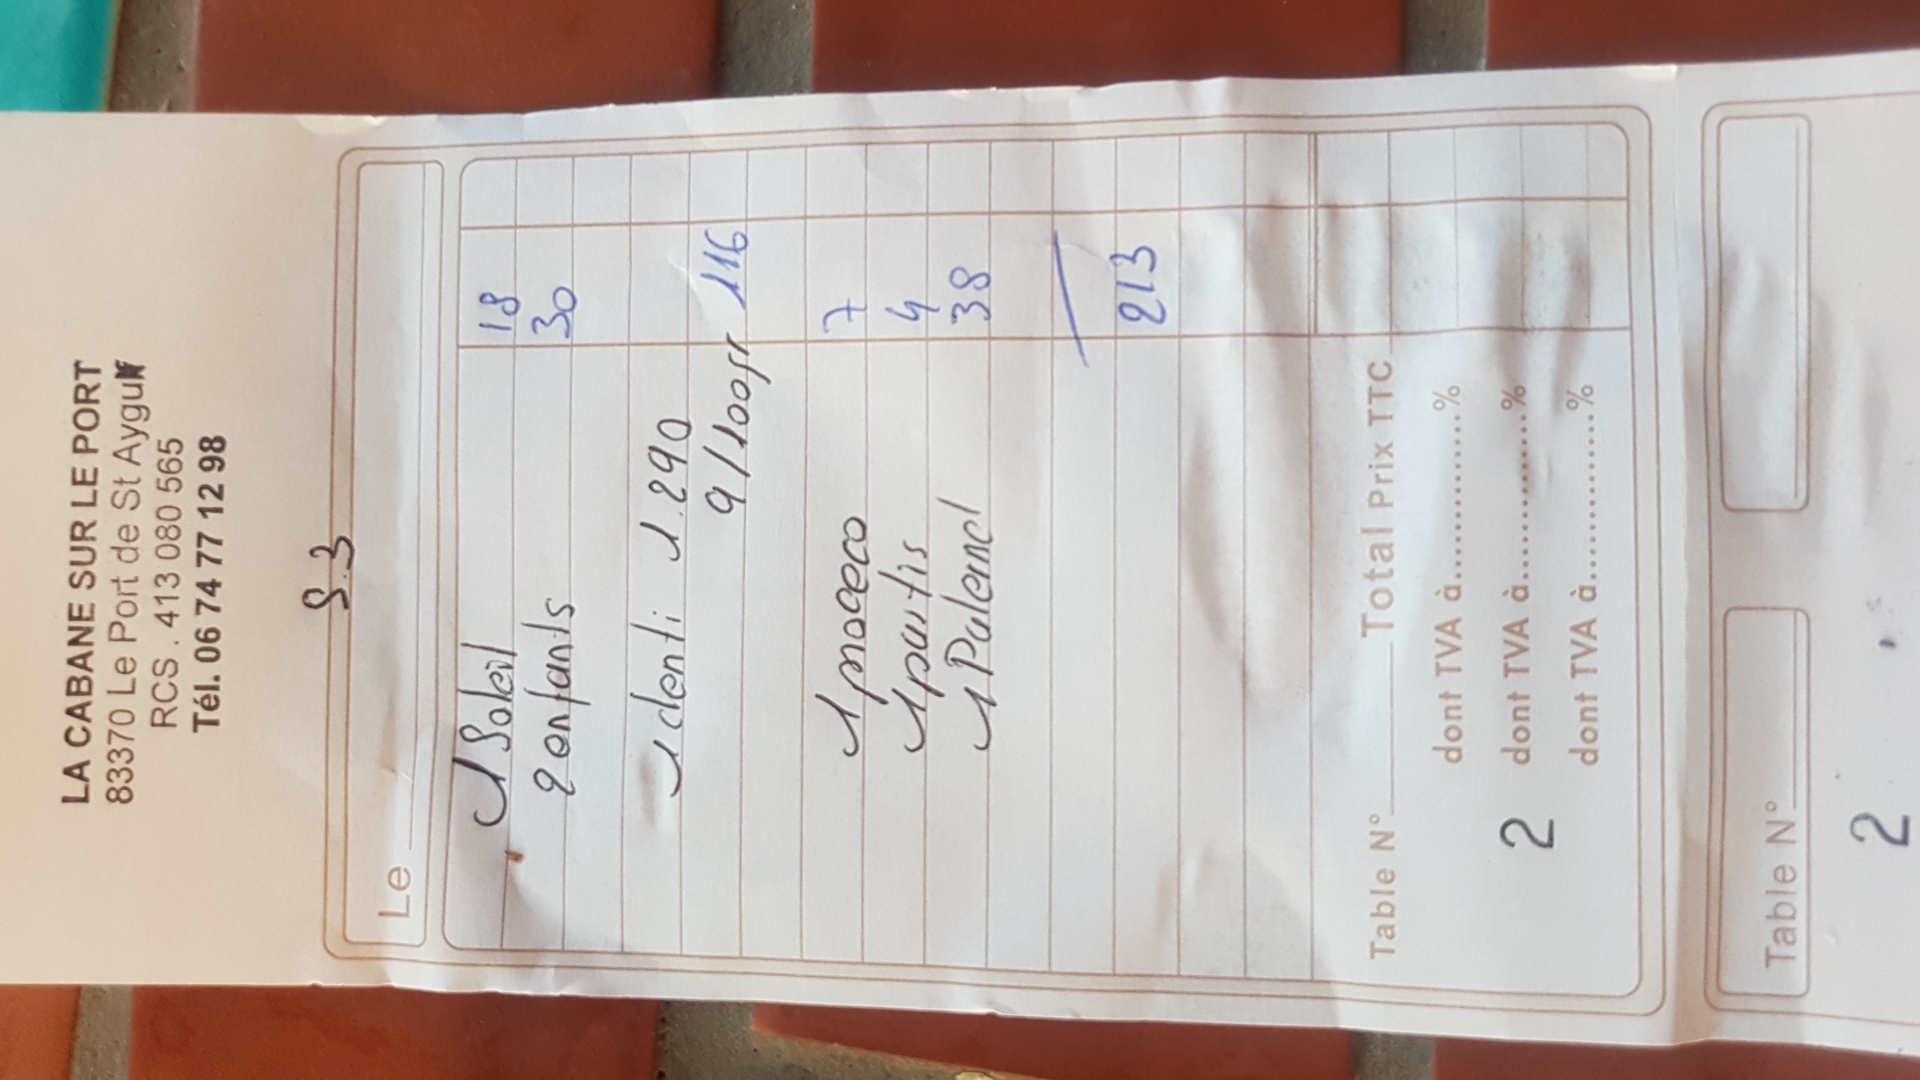 LA CABANE SUR LE PORT
83370 Le Port de St Aygulf
RCS . 413 080 565
Tél. 06 74 77 12 98
S.3
Le
1 Soleil 18
2 enfants 30
1 denti 1.290
9/100gr 116
1 proceco 7
1 partis 4
1 Palend 38
213
Table N° Total Prix TTC
dont TVA à ............. %
2 dont TVA à ............. %
dont TVA à ............. %
Table N°
2